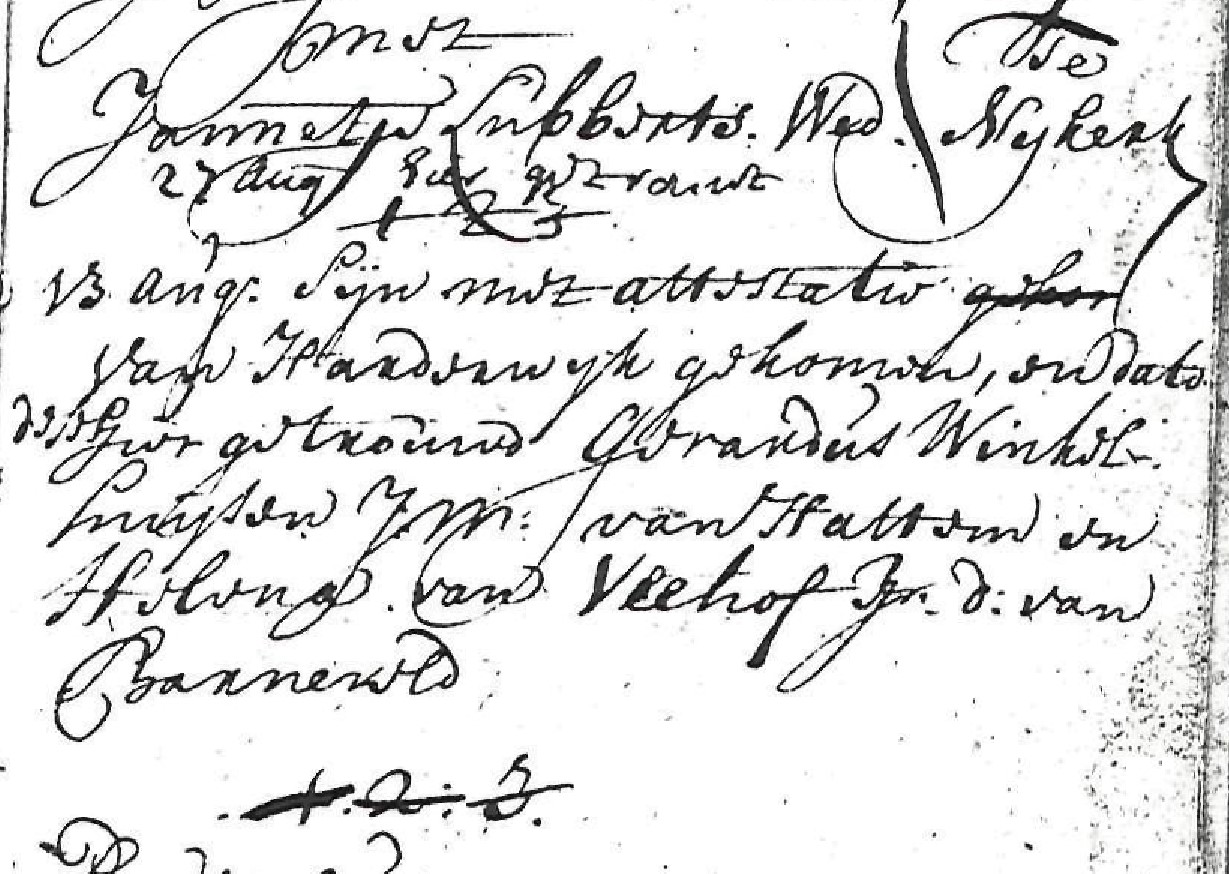 met
te
Jannetje Lubberts. Wed. Nijkerk
27 Aug hier getrouwt
1 2 3
13 Aug. Sijn met attestatie gekom
van Harderwyk gekomen, en dato
dese hier getrouwd Gerardus Winkel-
huijsen J.M: van Hattem en
Helena van Veehof J. d: van
Barneveld
1. 2. 3.